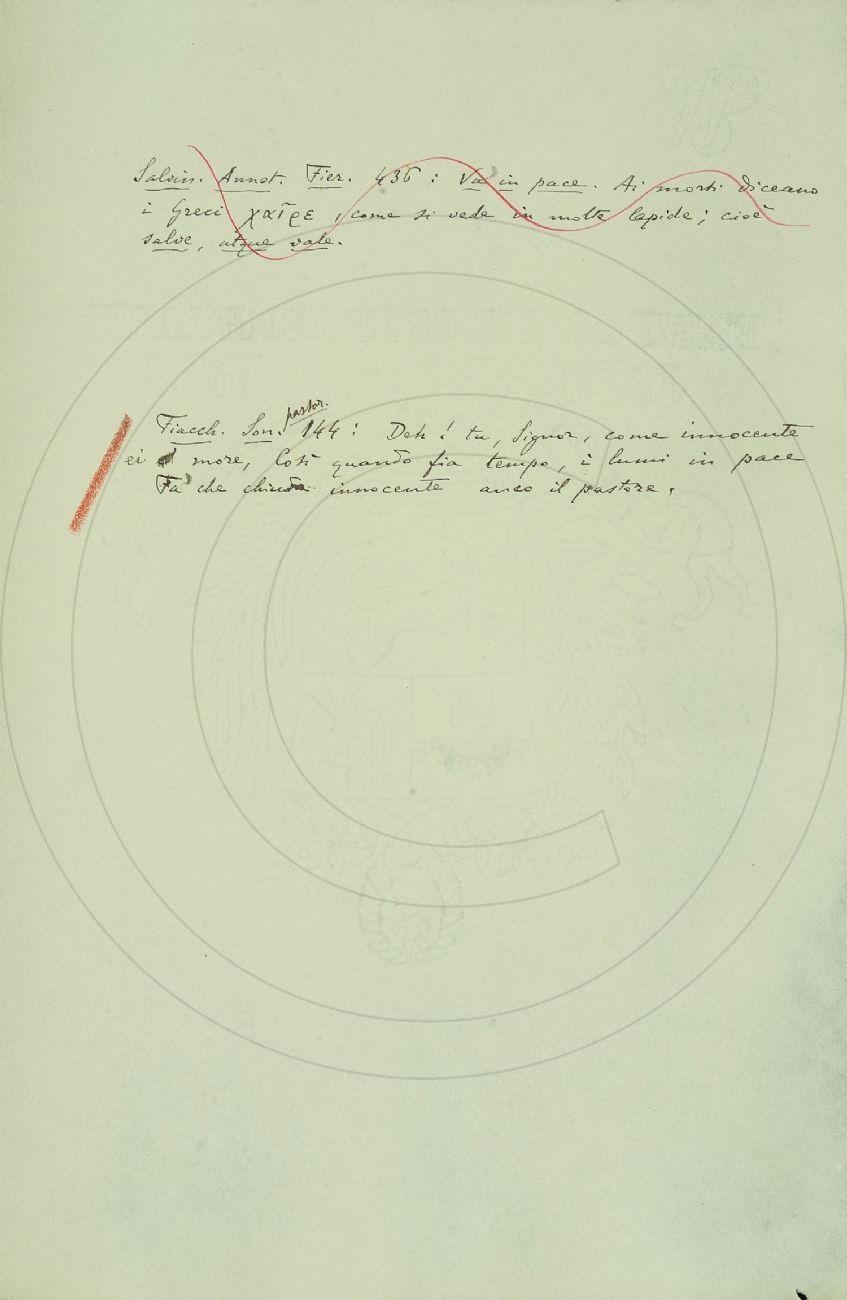 Salvin. Annot. Fier. 436: Va in pace. Ai morti diceano
i Greci χαῖρε, come si vede in molte lapide; cioè
salve, atque vale.
pastor.
Fiacch. Son. 144: Deh! tu, Signor, come innocente
ei more, Così quando fia tempo, i lumi in pace
Fa' che chiuda innocente anco il pastore.